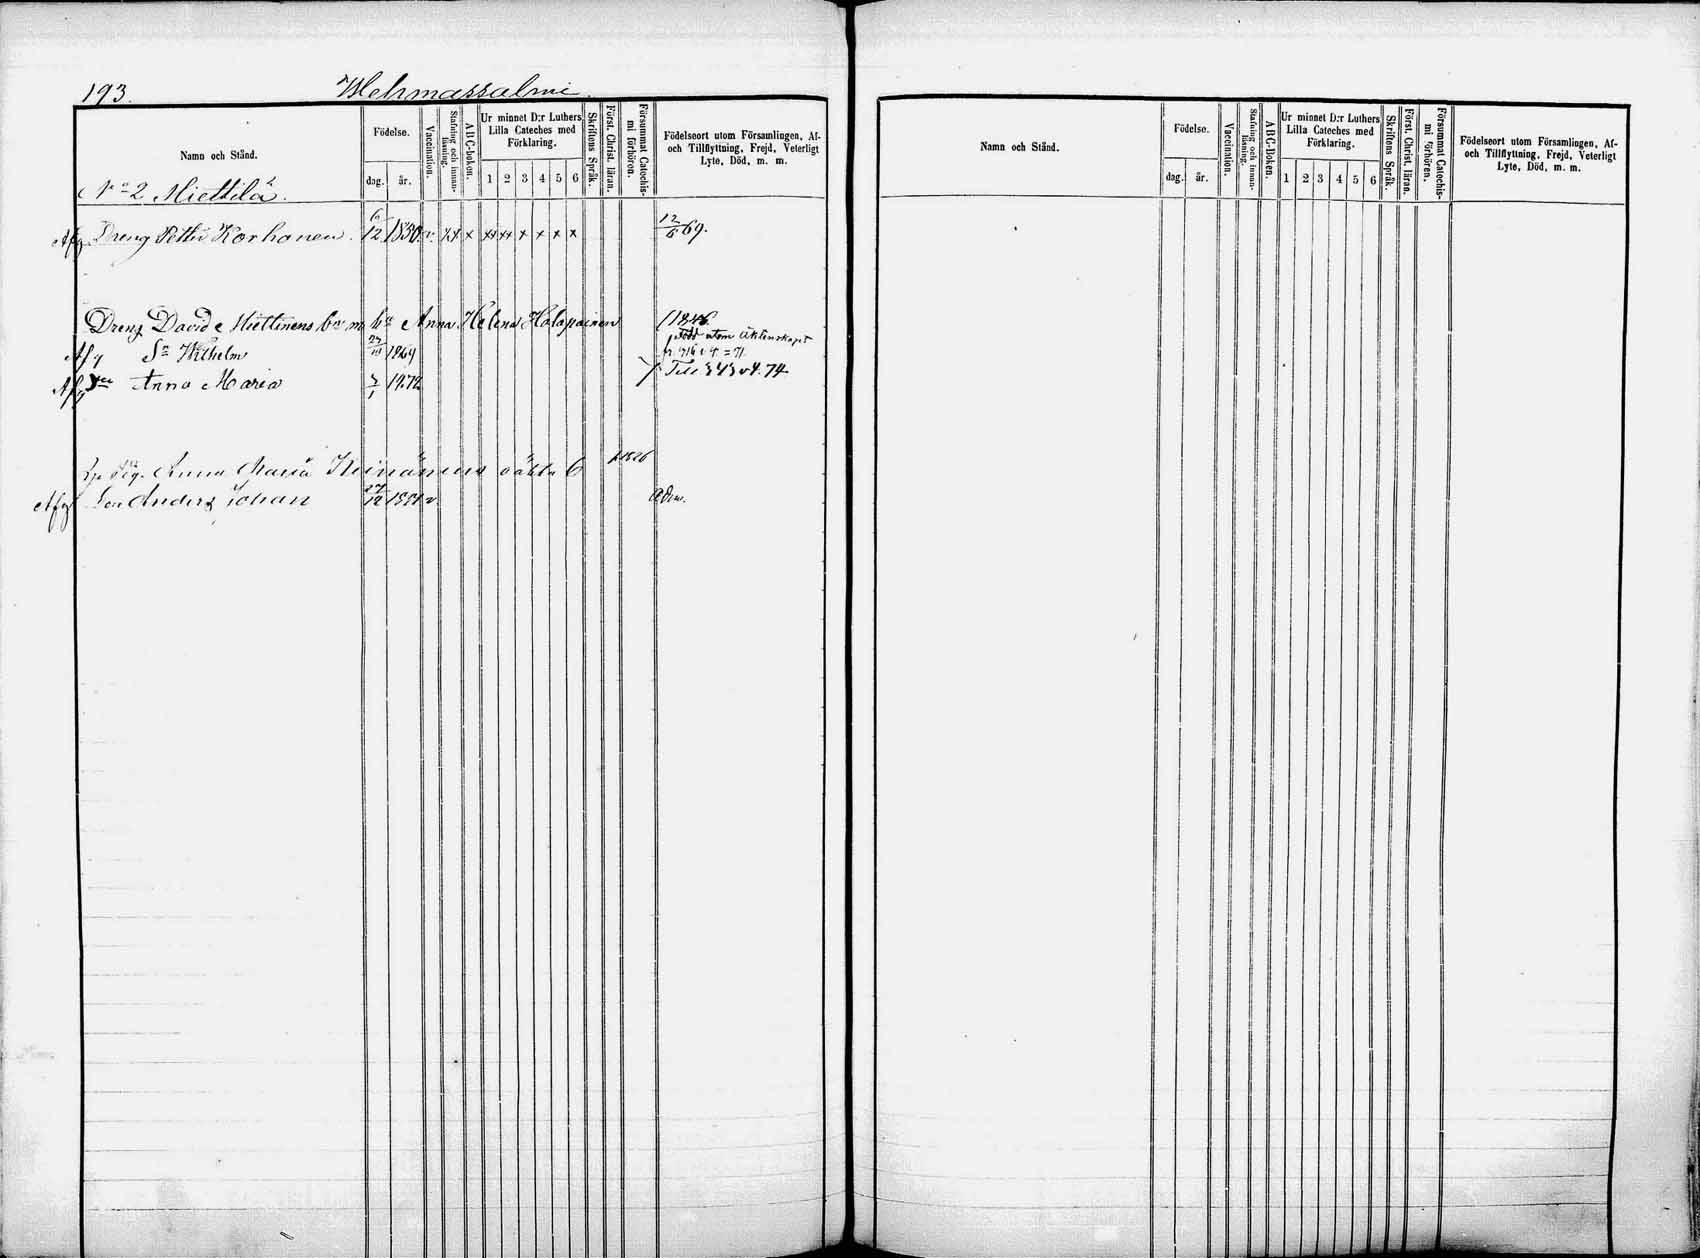 193. Wehmassalmi.
Namn och Stånd.
Födelse.
dag. år.
Vaccination.
Stafning och innan-läsning.
ABC-boken.
Ur minnet D:r Luthers Lilla Cateches med Förklaring.
1 2 3 4 5 6
Skriftens Språk.
Först. Christ. läran.
Försummat Catechis-mi förhören.
Födelseort utom Församlingen, Af-
och Tillflyttning, Frejd, Veterligt
Lyte, Död, m. m.
No 2 Miettilä.
Afg Dreng Petter Korhonen. 6/12 1850. v. x x x x x x x x 12/6 69.
Dreng David Miettinens Anna Helena Holopainen 1846.
född utom äktenskapet
Afg Sn Wilhelm 1869
Afg Anna Maria 3/1 1872 Till 343 v 4. 74
Anna Maria 1826
Afg Son Anders Johan 27/12 v.
Namn och Stånd.
Födelse.
dag. år.
Vaccination.
Stafning och innan-läsning.
ABC-Boken.
Ur minnet D:r Luthers Lilla Cateches med Förklaring.
1 2 3 4 5 6
Skriftens Språk.
Först. Christ. läran.
Försummat Catechis-mi förhören.
Födelseort utom Församlingen, Af-
och Tillflyttning, Frejd, Veterligt
Lyte, Död, m. m.